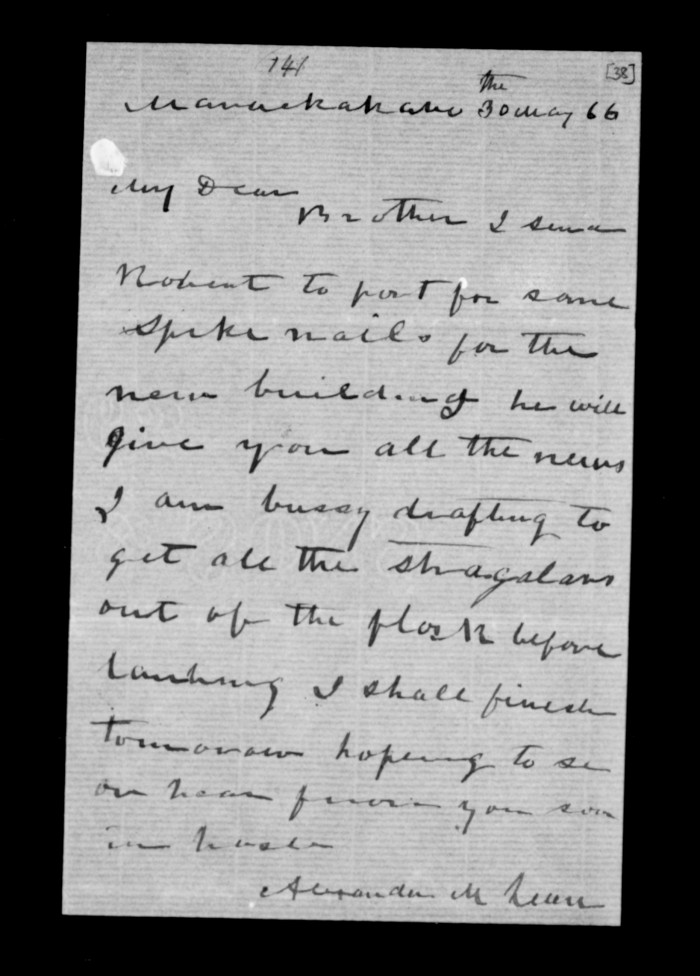 141 [38]
the
Maraekakaho 30 May 66
My Dear
Brother I send
Robert to port for some
Spike nails for the
new building he will
give you all the news
I am bussy drafting to
get all the stragalars
out of the flock before
I shall finish
tomorrow hoping to se
or hear from you soon
in haste
Alexander McLean